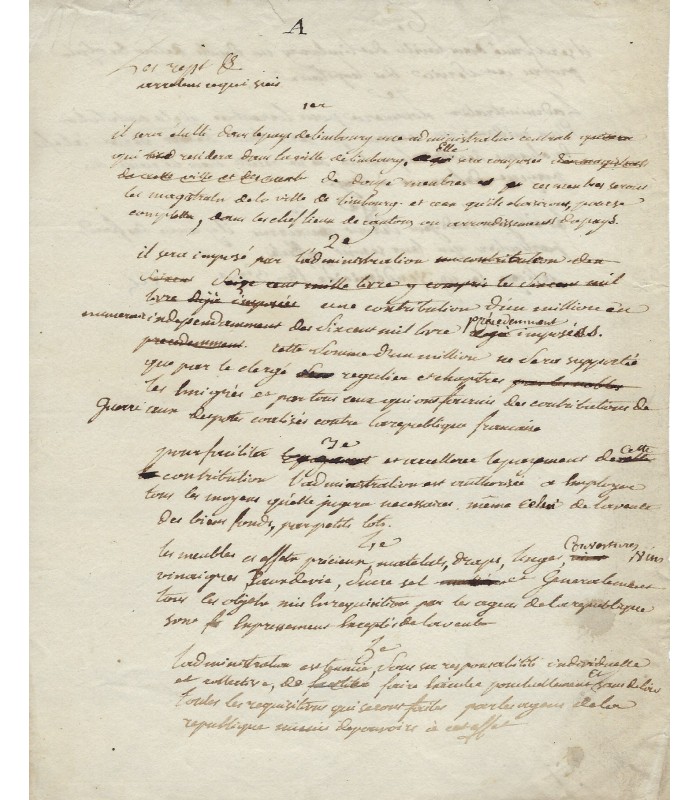 A
Les rept
arretent ce qui suit
1er
il sera établi dans le pays de limbourg une administration centrale
qui residera dans la ville de limbourg, Elle sera composée
de cette ville et de de douze membres ces membres seront
les magistrats de la ville de limbourg et ceux qu'ils choisiront, pour se
completter, dans les chef lieux de cantons ou arrondissements du pays.
2e
il sera imposé par l'administration une contribution de
Seize cent mille livre y compris les Sixcent mil
livre dejà imposées une contribution d'un million en
numeraire independamment des Sixcent mil livre précedemment dejà imposées.
precedemment. cette Somme d'un million ne Sera supportée
que par le clergé regulier et chapitres par les nobles
les Emigrés et par tous ceux qui ont fournis des contributions de
Guerre aux despotes coalisés contre la republique francaise
3e
pour faciliter et accellerer le payement de cette
contribution l'administration est authorisée a Employer
tous les moyens qu'elle jugera necessaires même celui de la vente
des biens fonds, par petits lots.
4e
les meubles et effets précieux, matelats, draps, linges, Couvertures Vins
vinaigres, Eau de vie, Sucre sel et Generalement
tous les objets mis En requisition par les agens de la republique
sont Expressement Exceptés de la vente
5e
l'administration est tenuë, Sous sa responsabilité individuelle
et collective, de faire Executer ponctuellement Et Sans delais
toutes les requisitions qui seront faites par les agens de la
republique munis de pouvoirs à cet effet